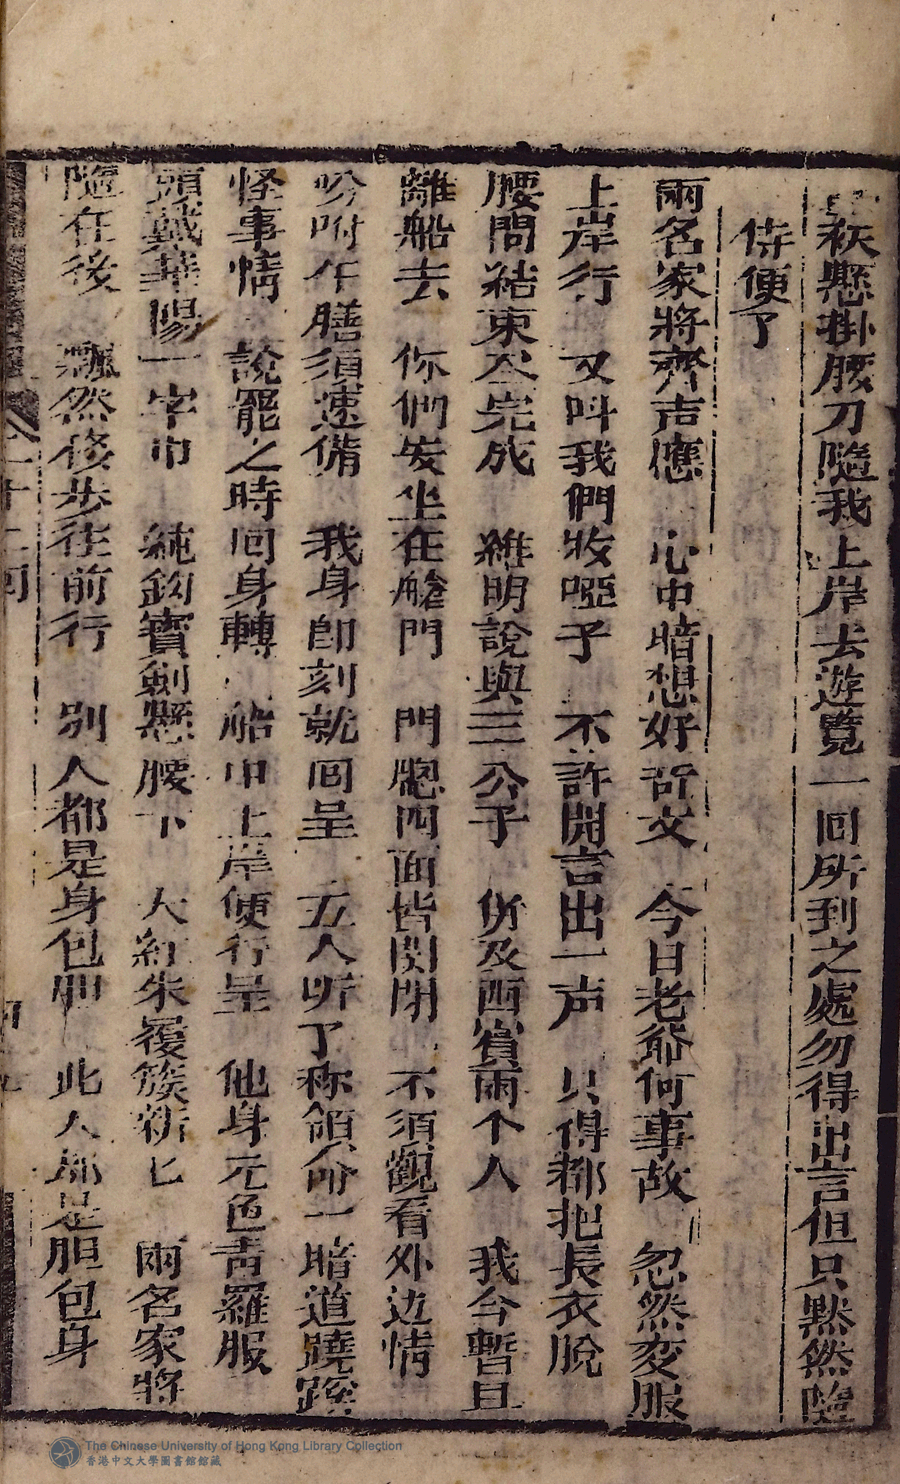 袄懸掛腰刀隨我上岸去遊覽一囘所到之處勿得出言但只默然隨
侍便了
兩名家將齊声應 心中暗想好 今日老爺何事故 忽然变服
上岸行 又呌我們妝啞子 不許開言出一声 只得都把長衣脫
腰間結束尽完成 維明說與三公子 併及西賓兩个人 我今暫且
離船去 你們安坐在艙門 門牕四面皆関閉 不須觀看外边情
吩咐午膳須速備 我身卽刻就囘呈 五人听了称領命 暗道蹺蹊
怪事情 說罷之時囘身轉 船中上岸便行呈 他身元色青羅服
頭戴華陽一字巾 純鈎寳剣懸腰下 大紅朱履簇新匕 兩名家將
隨在後 飄然移步往前行 別人都是身包胆 此人都是胆包身
十二囘
The Chinese University of Hong Kong Library Collection
香港中文大學圖書館館藏